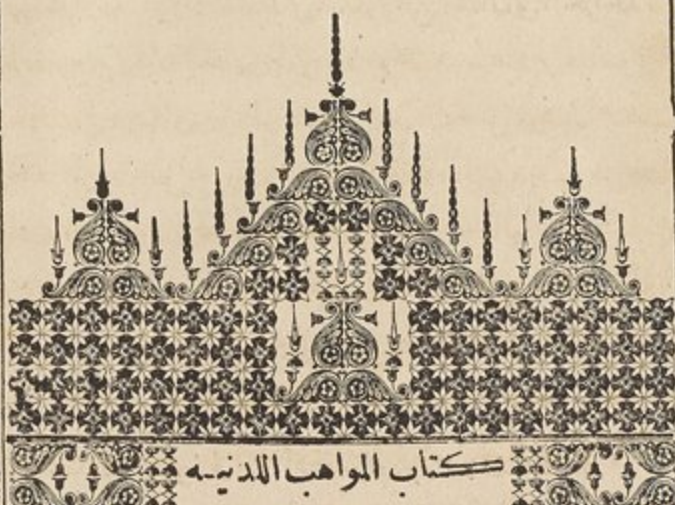 كتاب المواهب اللدنيه